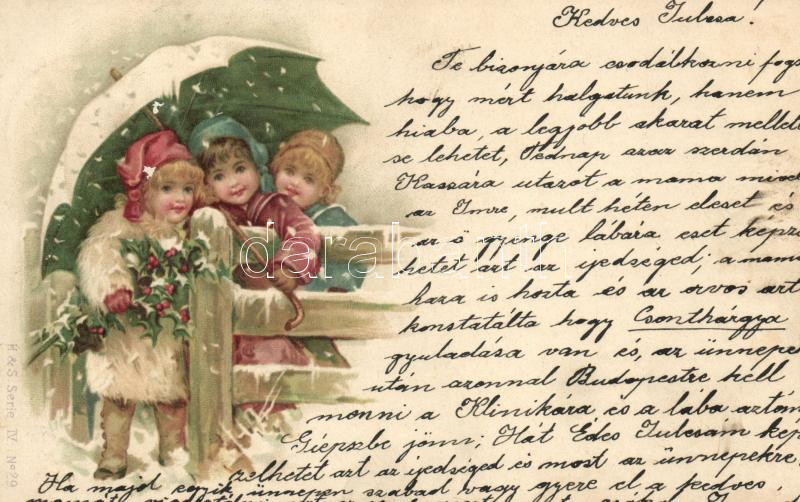 Kedves Julcsa!
Te bizonjára csodálkozni fogs
hogy mért halgatunk, hanem
hiaba, a legjobb akarat mellett
se lehetet, Tednap azaz szerdán
Kassára utazot a mama mivel
az Imre, mult héten eleset és
az ő gyenge lábára eset képz
hetet azt az ijedséged; a mama
haza is hozta és az orvos azt
konstatálta hogy Csonthárgya
gyuladása van és, az ünnepek
után azonnal Budapestre kell
menni a Klinikára és a lába aztán
Giepszbe jönni; Hát Édes Julcsam kép
zelhetet azt az ijedséged és most az ünnepekre
Ha majd egyik ünnepen szabad vagy gyere el a kedves
H & S Serie IV No 29
darabanth